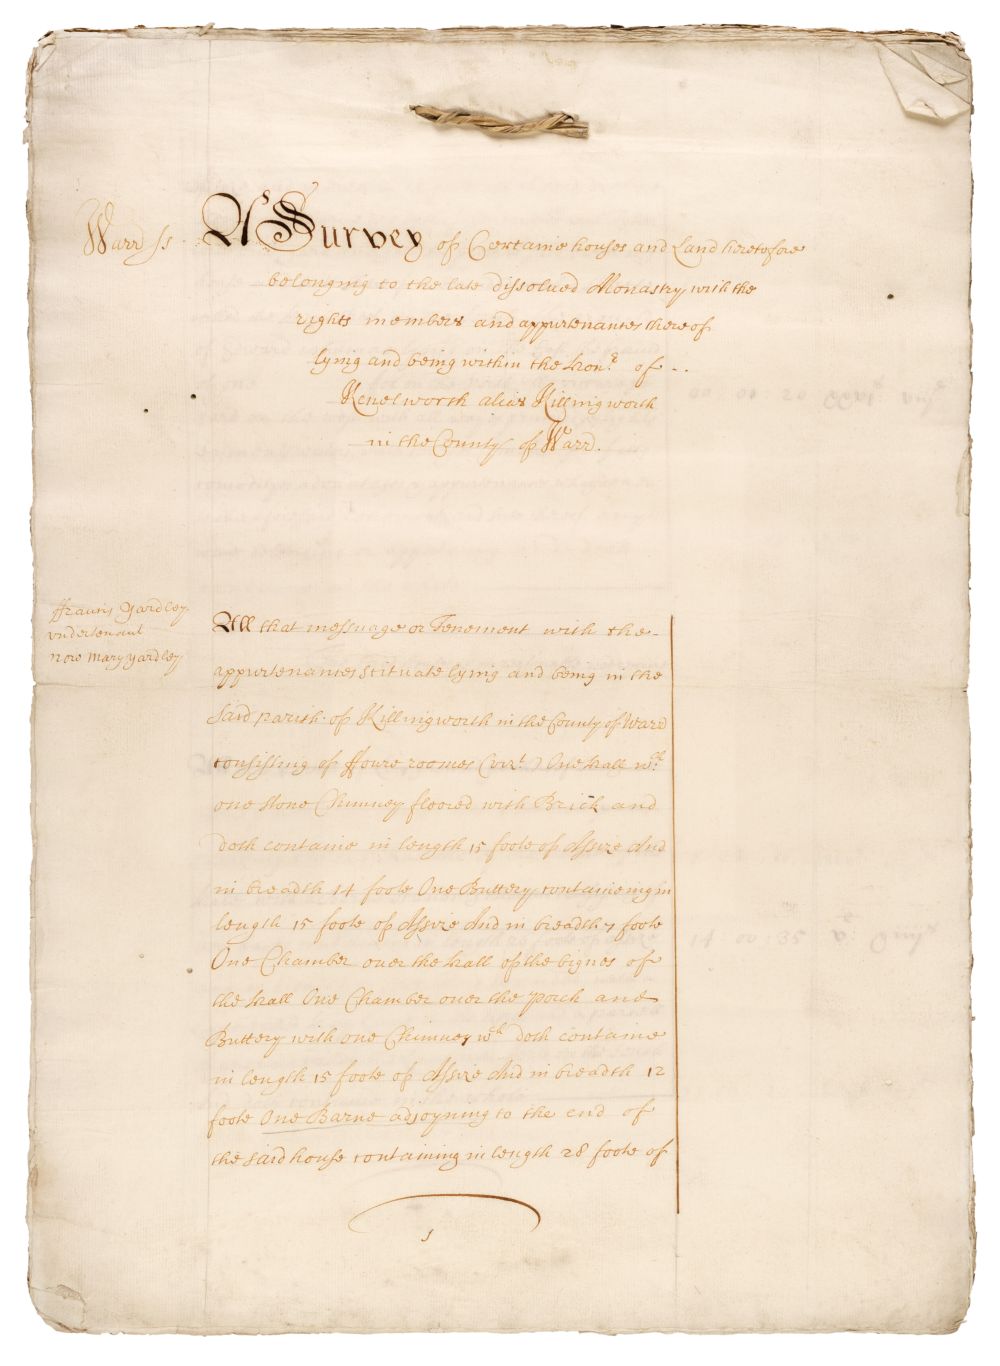 Warr ss.
A Survey of Certaine houses and Land heretofore
belonging to the late dissolued Monastry with the
rights members and appurtenantes thereof
lying and being within the honr of --
Kenelworth alias Killingworth
in the County of Warr.
ffrauncis Yardley
vndertenant
now Mary Yardley
All that messuage or Tenement with the-
appurtenantes scituate lying and being in the
said parish of Killingworth in the County of Warr
consisting of ffoure roomes (vizt) One hall wth
one stone Chimney floored with Brick and
doth containe in length 15 foote of Assize And
in breadth 14 foote One Buttery containeing in
length 15 foote of Assize And in breadth 7 foote
One Chamber over the hall of the bignes of
the hall One Chamber over the porch and
Buttery with one Chimney wch doth containe
in length 15 foote of Assize And in breadth 12
foote One Barne adjoyning to the end of
the said house containing in length 28 foote of
1